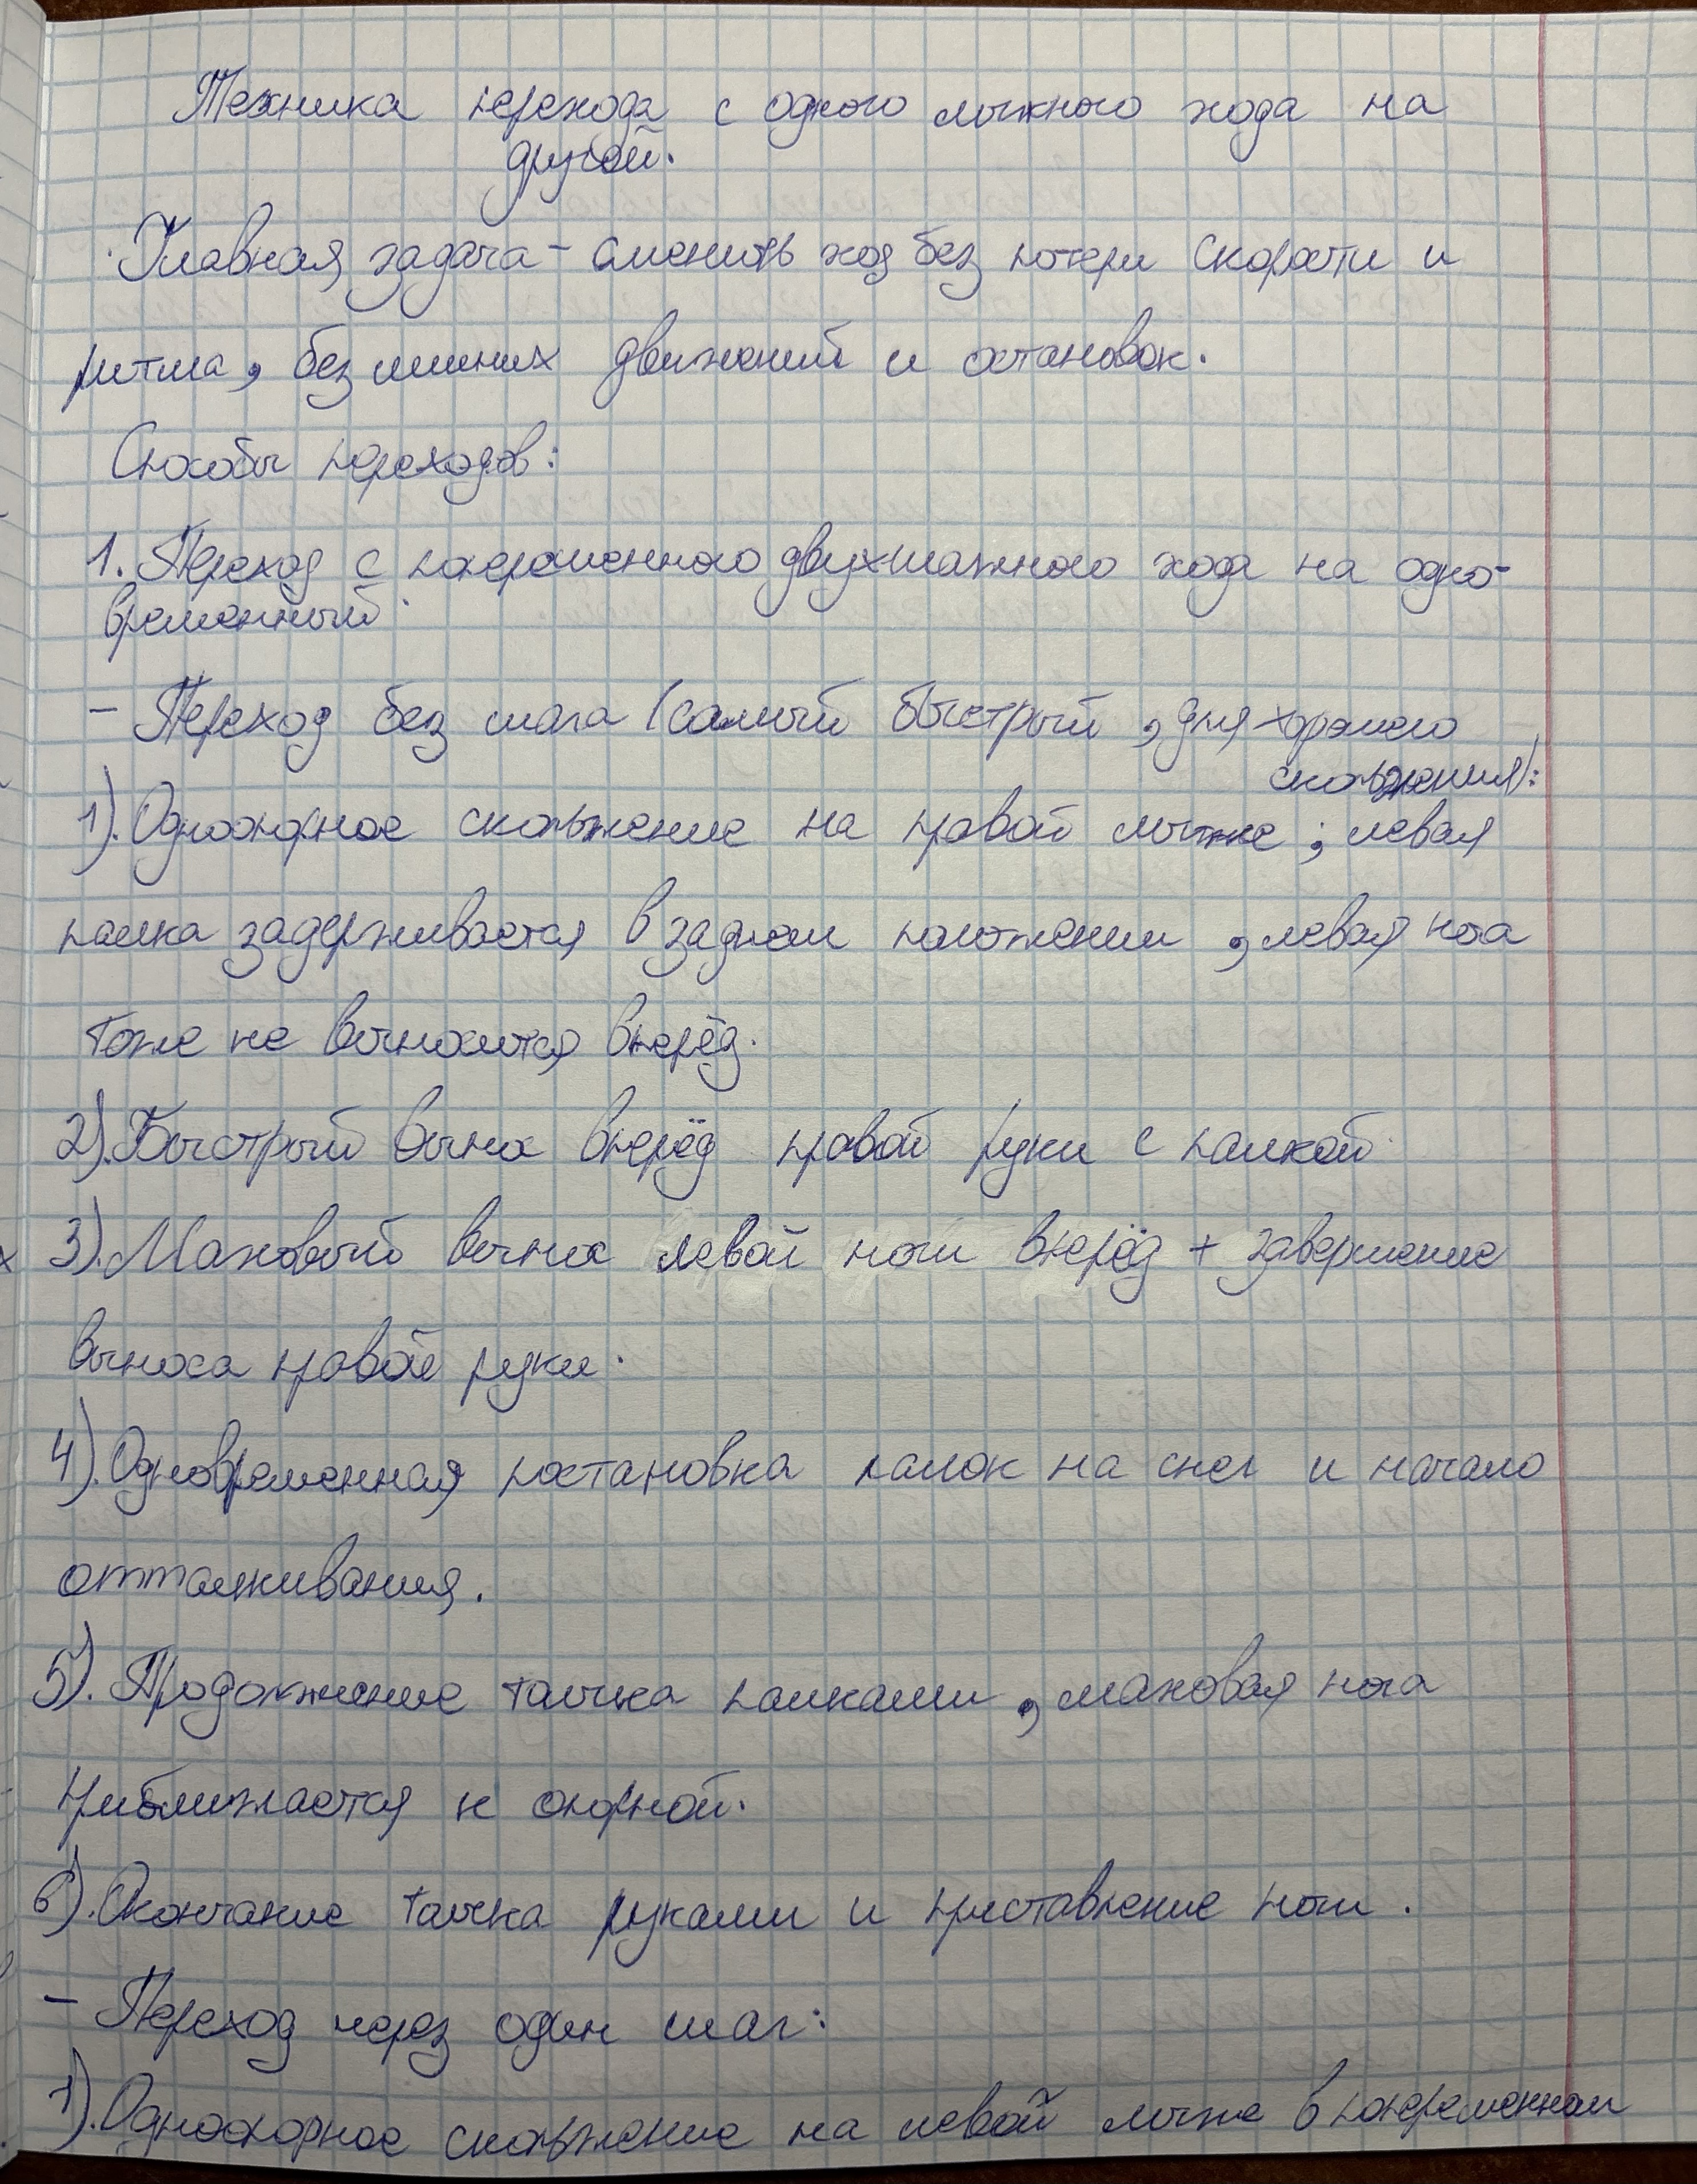 Техника перехода с одного лыжного хода на
другой.
Главная задача - сменить ход без потери скорости и
ритма, без лишних движений и остановок.
Способы переходов:
1. Переход с попеременного двухшажного хода на одно-
временный.
- Переход без шага (самый быстрый, для хорошего
скольжения):
1). Одноопорное скольжение на правой лыже; левая
палка задерживается в заднем положении, левая нога
тоже не выносится вперёд.
2). Быстрый вынос вперёд правой руки с палкой.
3). Маховый вынос левой ноги вперёд + завершение
выноса правой руки.
4). Одновременная постановка палок на снег и начало
отталкивания.
5). Продолжение толчка палками, маховая нога
приближается к опорной.
6). Окончание толчка руками и приставление ноги.
- Переход через один шаг:
1). Одноопорное скольжение на левой лыже в попеременном